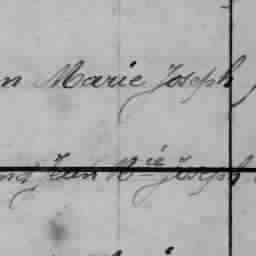 n Marie Joseph
Jean M ie Joseph